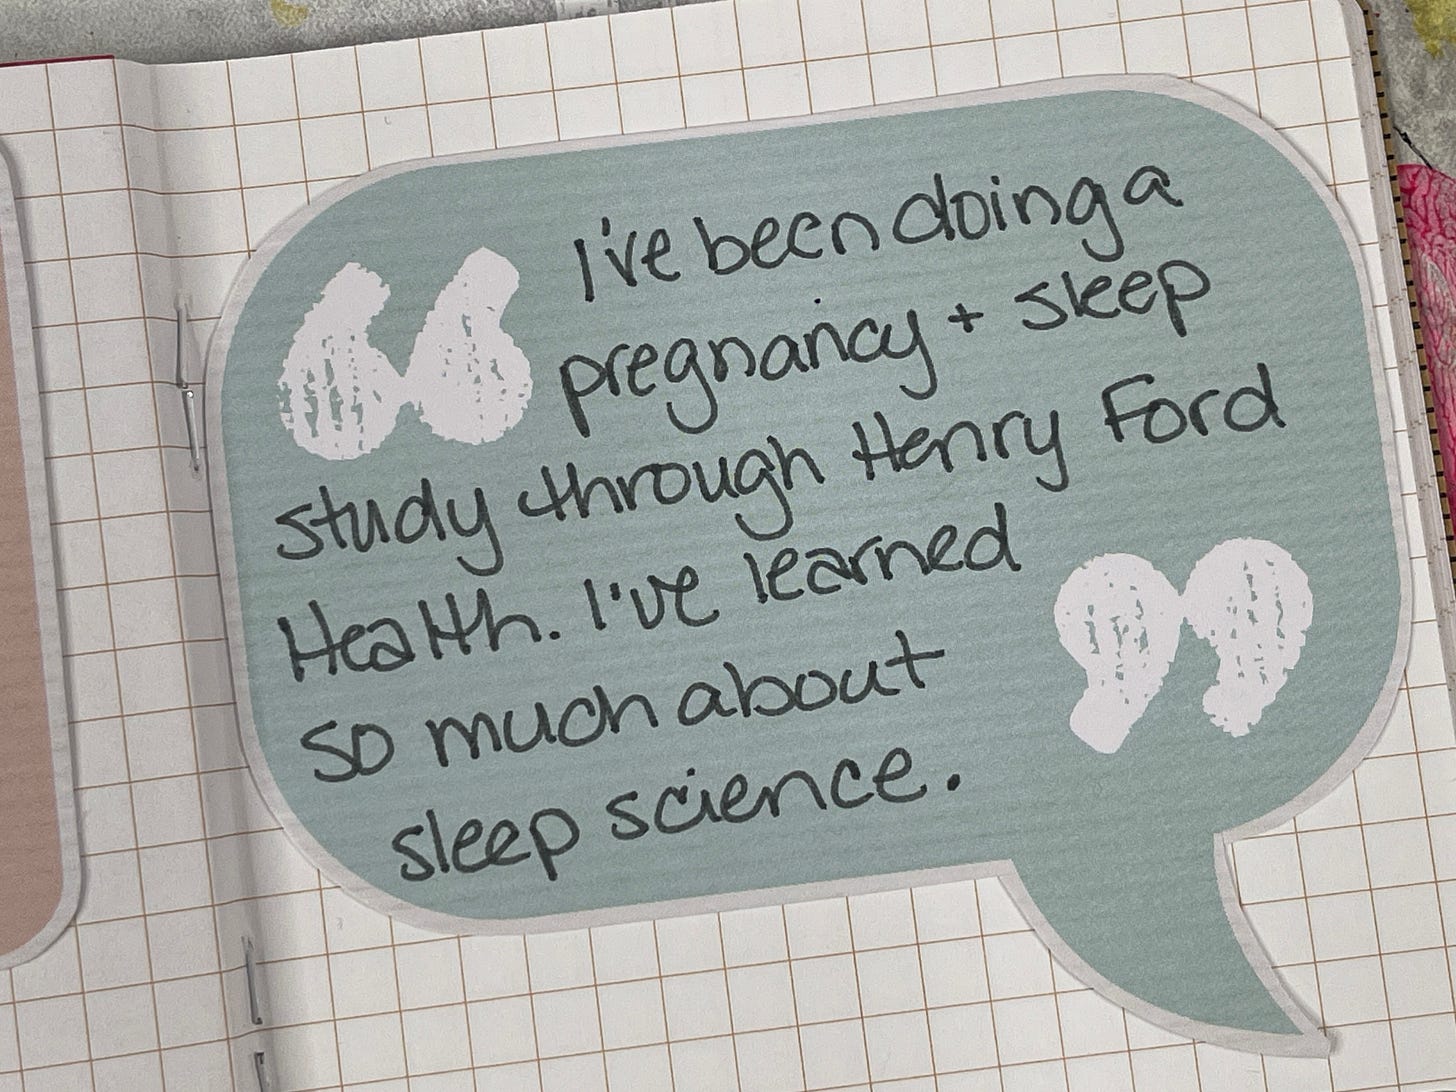 I've been doing a
pregnancy + sleep
study through Henry Ford
Health. I've learned
so much about
sleep science.